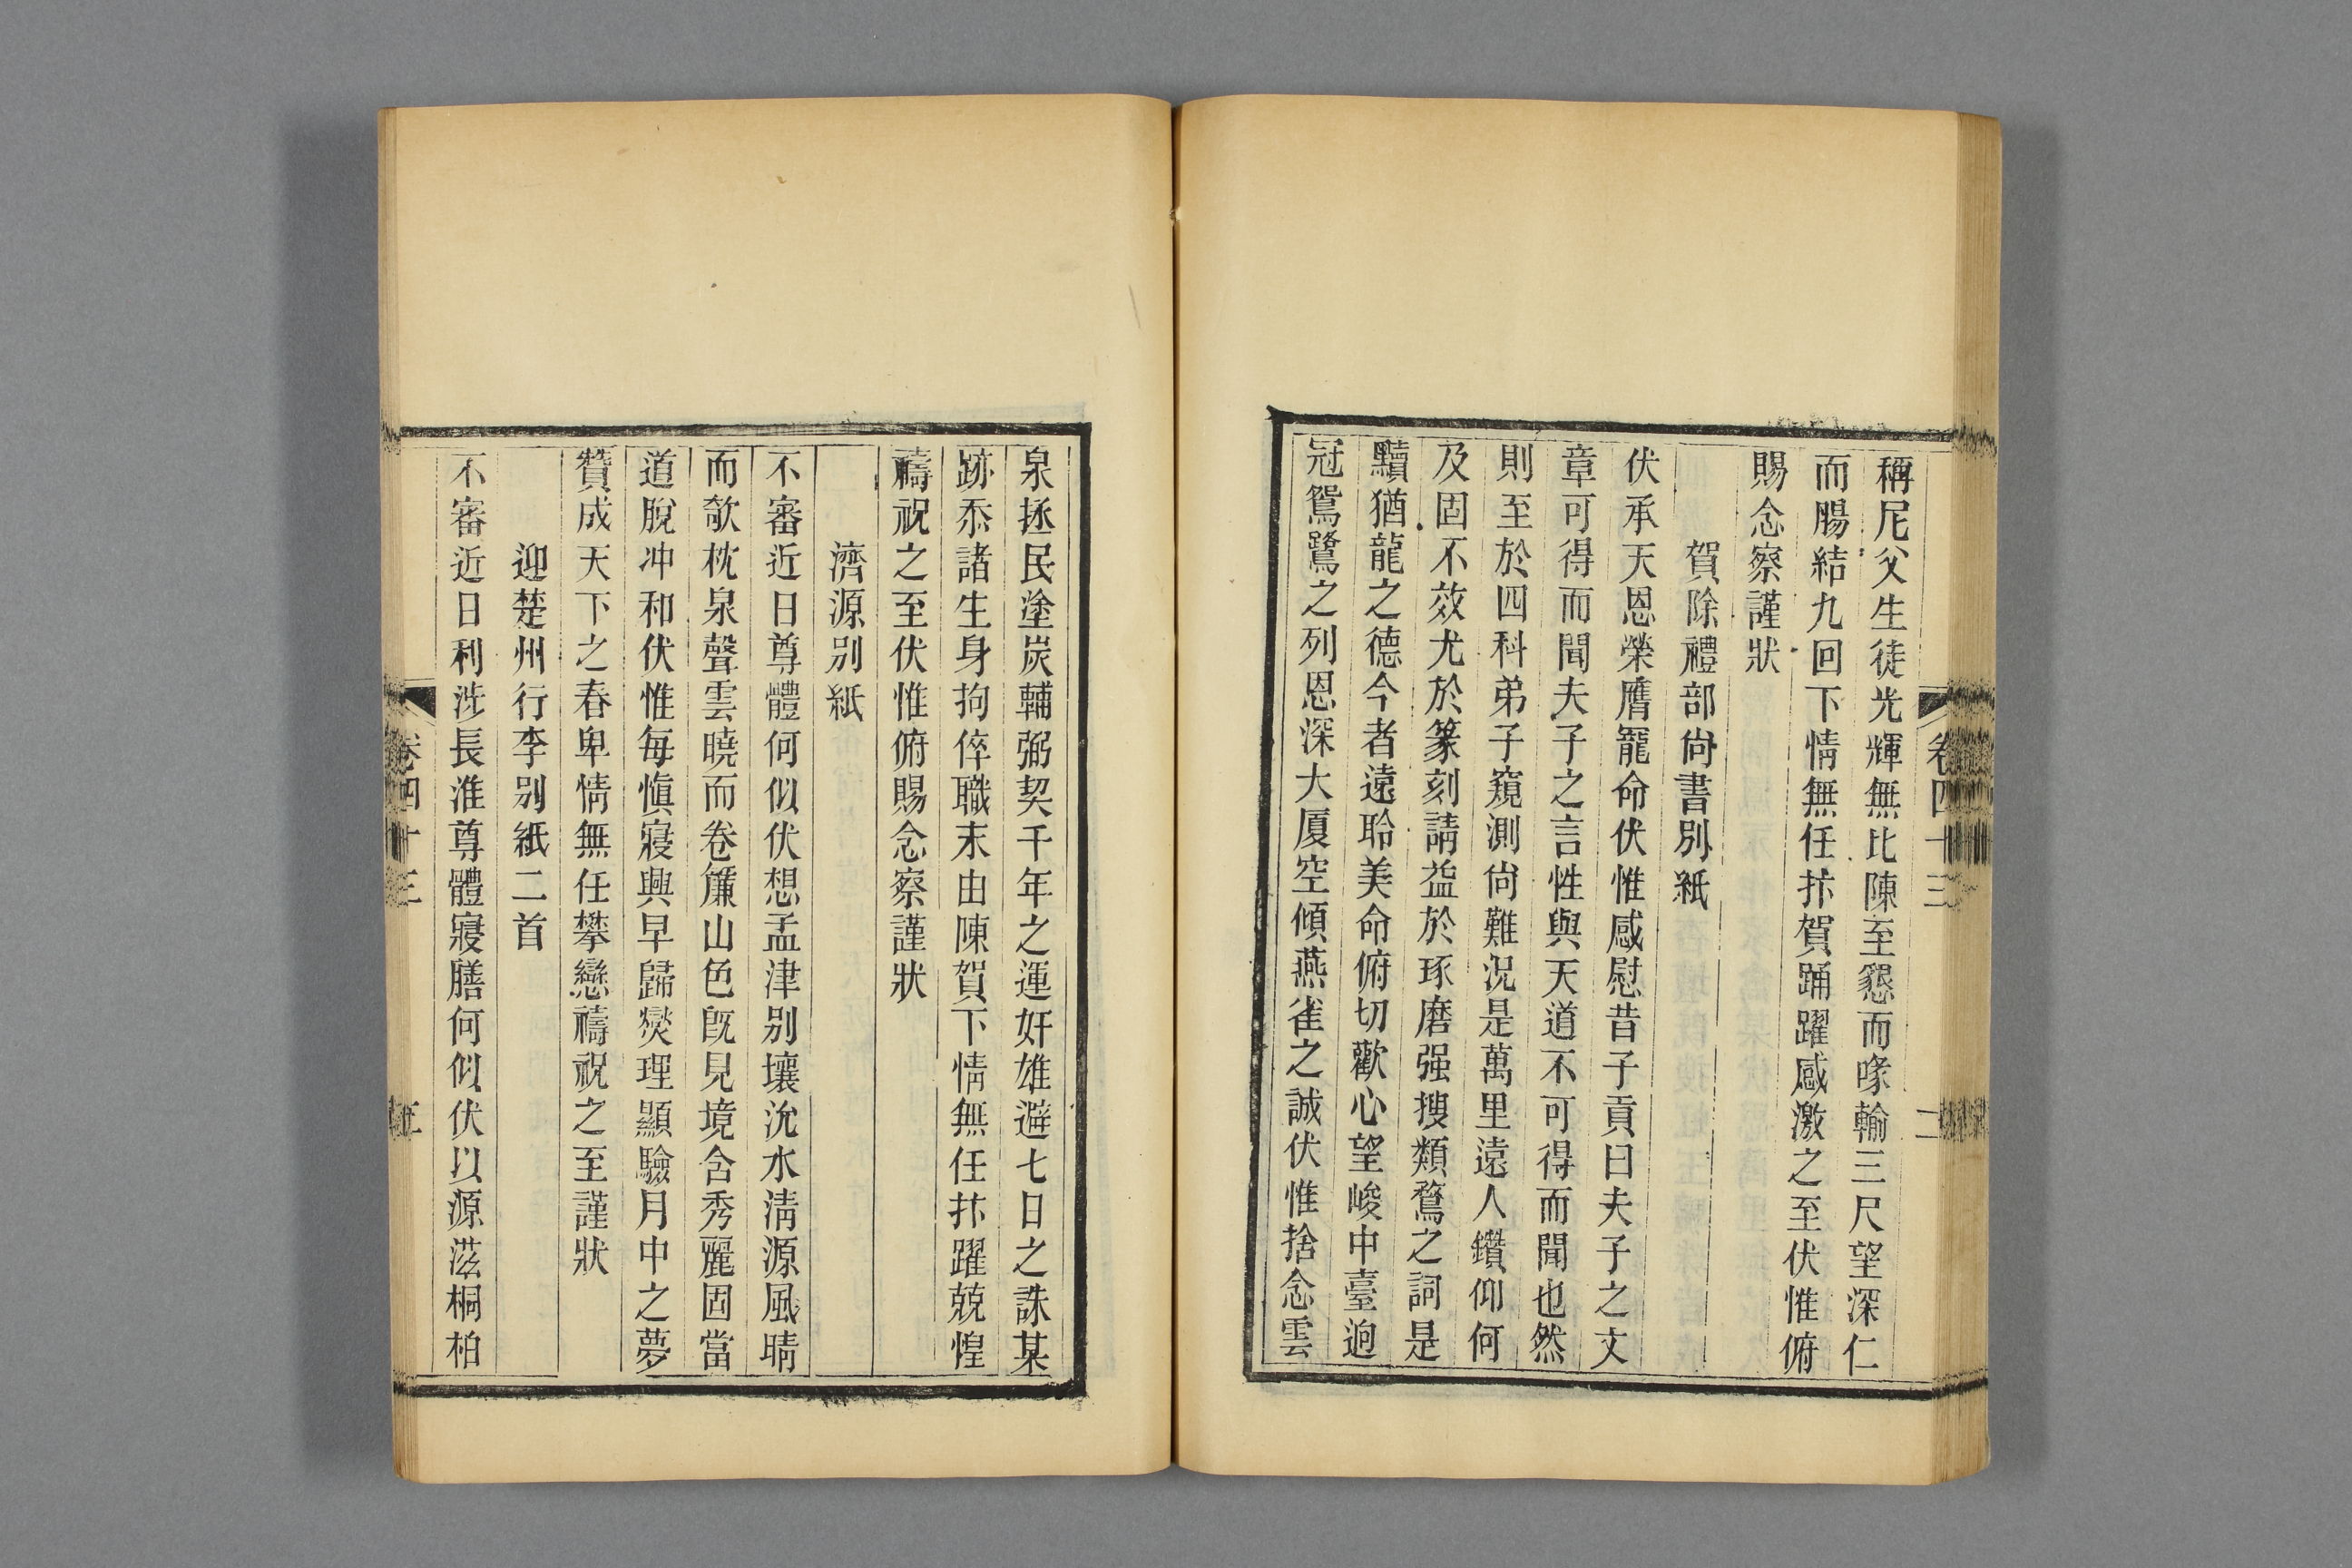 稱尼父生徒光輝無比陳至懇而喙輸三尺望深仁
而腸結九回下情無任抃賀踊躍感激之至伏惟俯
賜念察謹狀
賀除禮部尙書別紙
伏承天恩榮膺寵命伏惟感慰昔子貢曰夫子之文
章可得而聞夫子之言性與天道不可得而聞也然
則至於四科弟子窺測尙難況是萬里遠人鑽仰何
及固不效尤於篆刻請益於琢磨强搜類鶩之詞是
黷猶龍之德今者遠聆美命俯切歡心望峻中臺逈
冠鴛鷺之列恩深大厦空傾燕雀之誠伏惟捨念雲
卷四十三
二
泉拯民塗炭輔弼契千年之運奸雄避七日之誅某
跡忝諸生身拘倅職末由陳賀下情無任抃躍兢惶
禱祝之至伏惟俯賜念察謹狀
濟源別紙
不審近日尊體何似伏想孟津別壤沇水淸源風晴
而欹枕泉聲雲曉而卷簾山色旣見境含秀麗固當
道脫冲和伏惟每愼寢興早歸爕理顯驗月中之夢
贊成天下之春卑情無任攀戀禱祝之至謹狀
迎楚州行李別紙二首
不審近日利涉長淮尊體寢膳何似伏以源滋桐柏
卷四十三